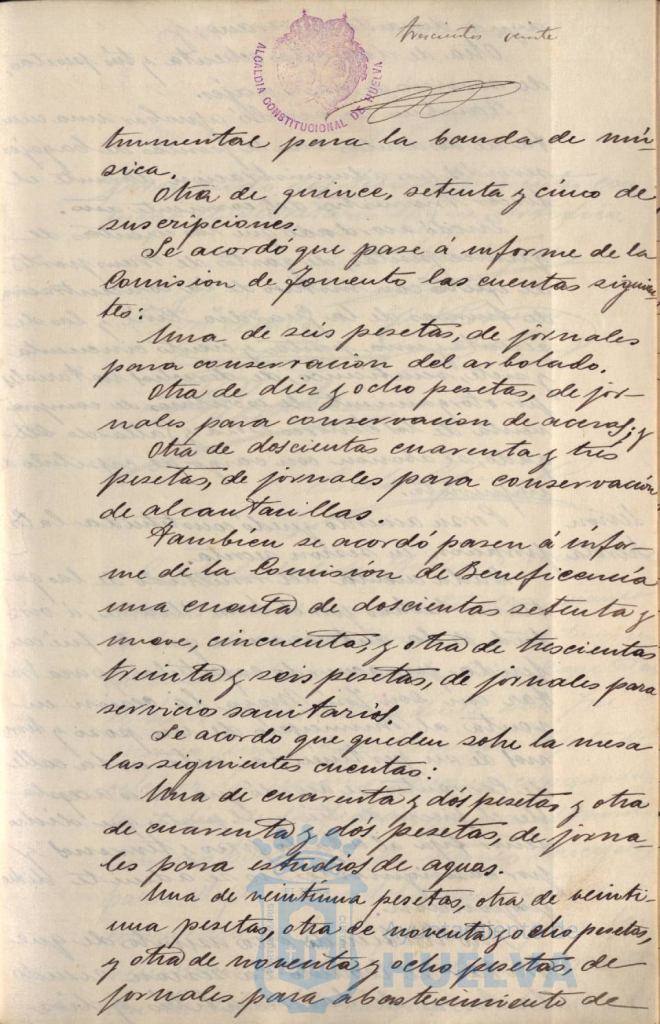 trescientos veinte
ALCALDIA CONSTITUCIONAL DE HUELVA
trumental para la banda de mú-
sica.
Otra de quince, setenta y cinco de
suscripciones.
Se acordó que pase á informe de la
Comision de Fomento las cuentas siguien-
tes:
Una de seis pesetas, de jornales
para conservacion del arbolado.
Otra de diez y ocho pesetas, de jor-
nales para conservacion de aceras; y
Otra de doscientas cuarenta y tres
pesetas, de jornales para conservación
de alcantarillas.
Tambien se acordó pasen á infor-
me de la Comisión de Beneficencia
una cuenta de doscientas setenta y
nueve, cincuenta, y otra de trescientas
treinta y seis pesetas, de jornales para
servicios sanitarios.
Se acordó que queden sobre la mesa
las siguientes cuentas:
Una de cuarenta y dós pesetas y otra
de cuarenta y dós pesetas, de jorna-
les para estudios de aguas.
Una de veintiuna pesetas, otra de veinti-
una pesetas, otra de noventa y ocho pesetas,
y otra de noventa y ocho pesetas, de
jornales para abastecimiento de
HUELVA